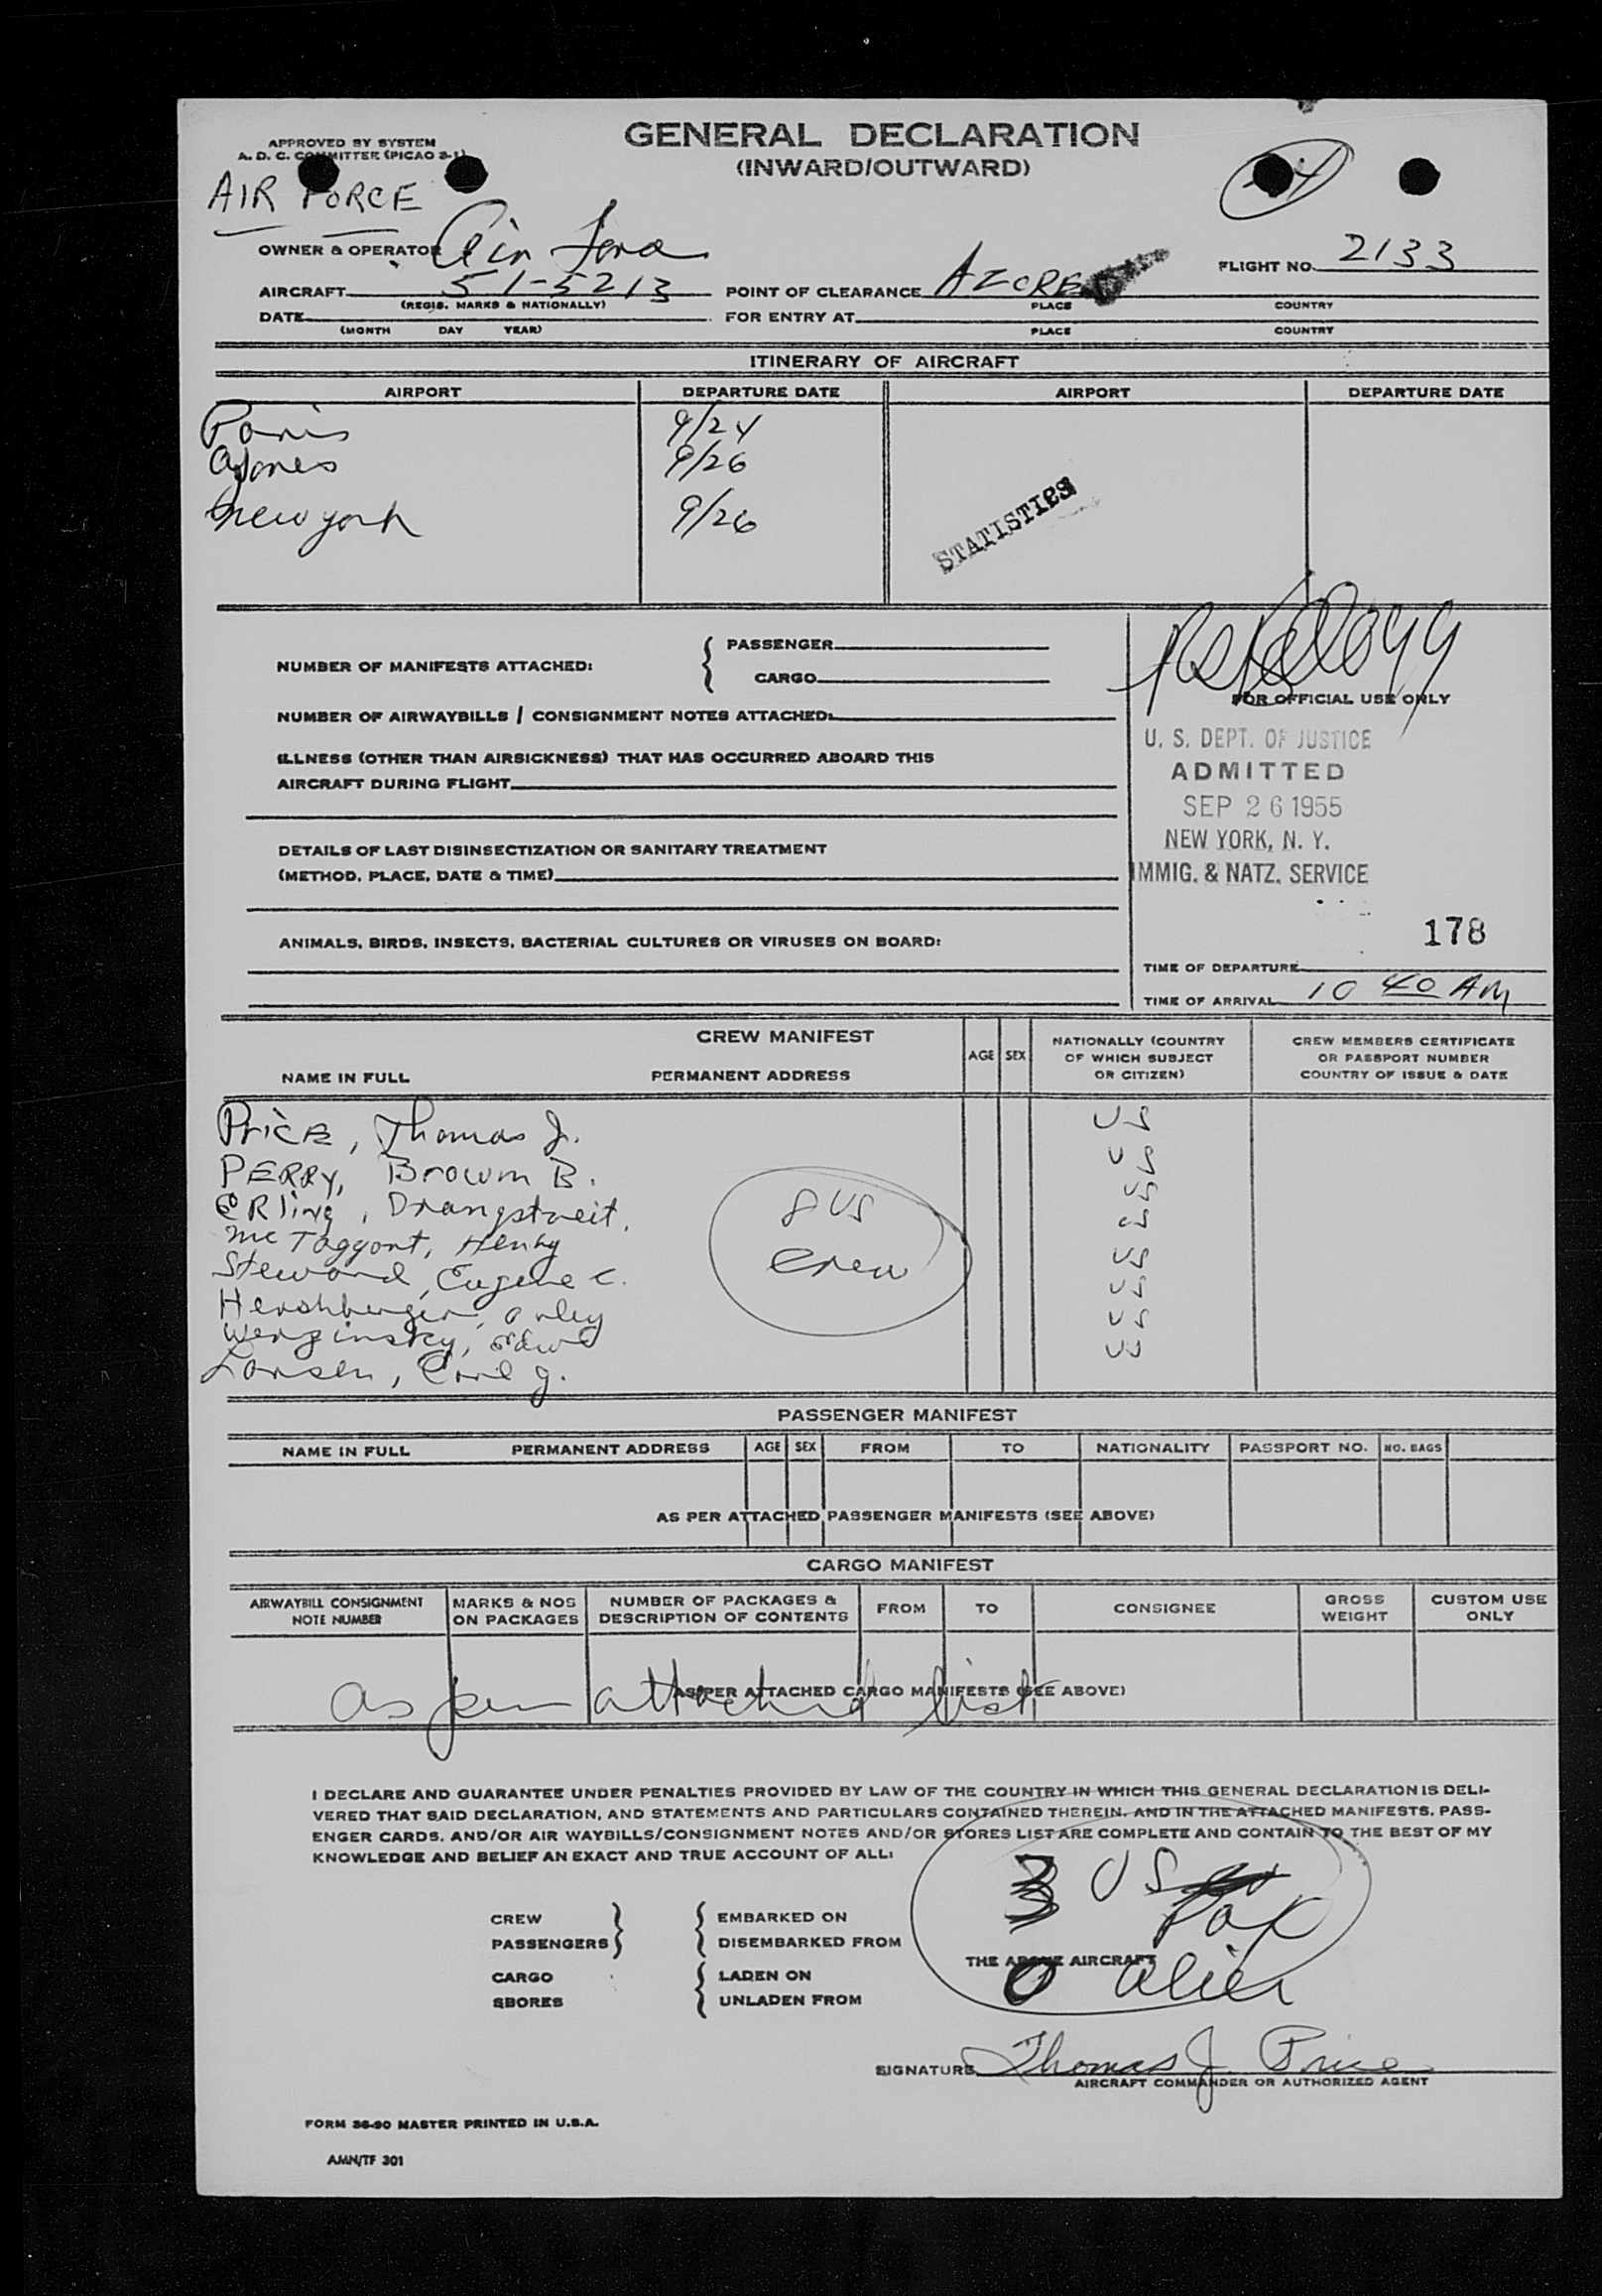 APPROVED BY SYSTEM
A. D. C. COMMITTER (PICAO 2-1)
GENERAL DECLARATION
(INWARD/OUTWARD)
AIR FORCE
OWNER & OPERATOR Air Force
FLIGHT NO. 2133
AIRCRAFT 51-5213 POINT OF CLEARANCE AZORES
(REGIS. MARKS & NATIONALLY) PLACE COUNTRY
DATE FOR ENTRY AT
(MONTH DAY YEAR) PLACE COUNTRY
ITINERARY OF AIRCRAFT
AIRPORT DEPARTURE DATE AIRPORT DEPARTURE DATE
Paris 9/24
Azores 9/26
New york 9/26
STATISTICS
NUMBER OF MANIFESTS ATTACHED: { PASSENGER
CARGO
FOR OFFICIAL USE ONLY
NUMBER OF AIRWAYBILLS / CONSIGNMENT NOTES ATTACHED:
U. S. DEPT. OF JUSTICE
ADMITTED
SEP 26 1955
NEW YORK, N. Y.
IMMIG. & NATZ. SERVICE
ILLNESS (OTHER THAN AIRSICKNESS) THAT HAS OCCURRED ABOARD THIS
AIRCRAFT DURING FLIGHT
DETAILS OF LAST DISINSECTIZATION OR SANITARY TREATMENT
(METHOD, PLACE, DATE & TIME)
178
ANIMALS, BIRDS, INSECTS, BACTERIAL CULTURES OR VIRUSES ON BOARD:
TIME OF DEPARTURE
TIME OF ARRIVAL 10 40 AM
CREW MANIFEST
NAME IN FULL PERMANENT ADDRESS AGE SEX
NATIONALLY (COUNTRY
OF WHICH SUBJECT
OR CITIZEN)
CREW MEMBERS CERTIFICATE
OR PASSPORT NUMBER
COUNTRY OF ISSUE & DATE
Price, Thomas J. US
PERRY, Brown B. US
ERling, Drangstveit. US
Mc Taggart, Henry US
Steward, Eugene C. US
Hershberger, Orley US
Werzinsky, Edwd US
Larsen, Carl J. US
8 US
Crew
PASSENGER MANIFEST
NAME IN FULL PERMANENT ADDRESS AGE SEX FROM TO NATIONALITY PASSPORT NO. NO. BAGS
AS PER ATTACHED PASSENGER MANIFESTS (SEE ABOVE)
CARGO MANIFEST
AIRWAYBILL CONSIGNMENT
NOTE NUMBER
MARKS & NOS
ON PACKAGES
NUMBER OF PACKAGES &
DESCRIPTION OF CONTENTS
FROM TO CONSIGNEE
GROSS
WEIGHT
CUSTOM USE
ONLY
AS PER ATTACHED CARGO MANIFESTS (SEE ABOVE)
as per attached list
I DECLARE AND GUARANTEE UNDER PENALTIES PROVIDED BY LAW OF THE COUNTRY IN WHICH THIS GENERAL DECLARATION IS DELI-
VERED THAT SAID DECLARATION, AND STATEMENTS AND PARTICULARS CONTAINED THEREIN, AND IN THE ATTACHED MANIFESTS, PASS-
ENGER CARDS, AND/OR AIR WAYBILLS/CONSIGNMENT NOTES AND/OR STORES LIST ARE COMPLETE AND CONTAIN TO THE BEST OF MY
KNOWLEDGE AND BELIEF AN EXACT AND TRUE ACCOUNT OF ALL:
3 US
Pax
CREW } { EMBARKED ON
PASSENGERS } { DISEMBARKED FROM
THE ABOVE AIRCRAFT
0 alien
CARGO { LADEN ON
SBORES { UNLADEN FROM
SIGNATURE Thomas J Price
AIRCRAFT COMMANDER OR AUTHORIZED AGENT
FORM 36-90 MASTER PRINTED IN U.S.A.
AMN/TF 301